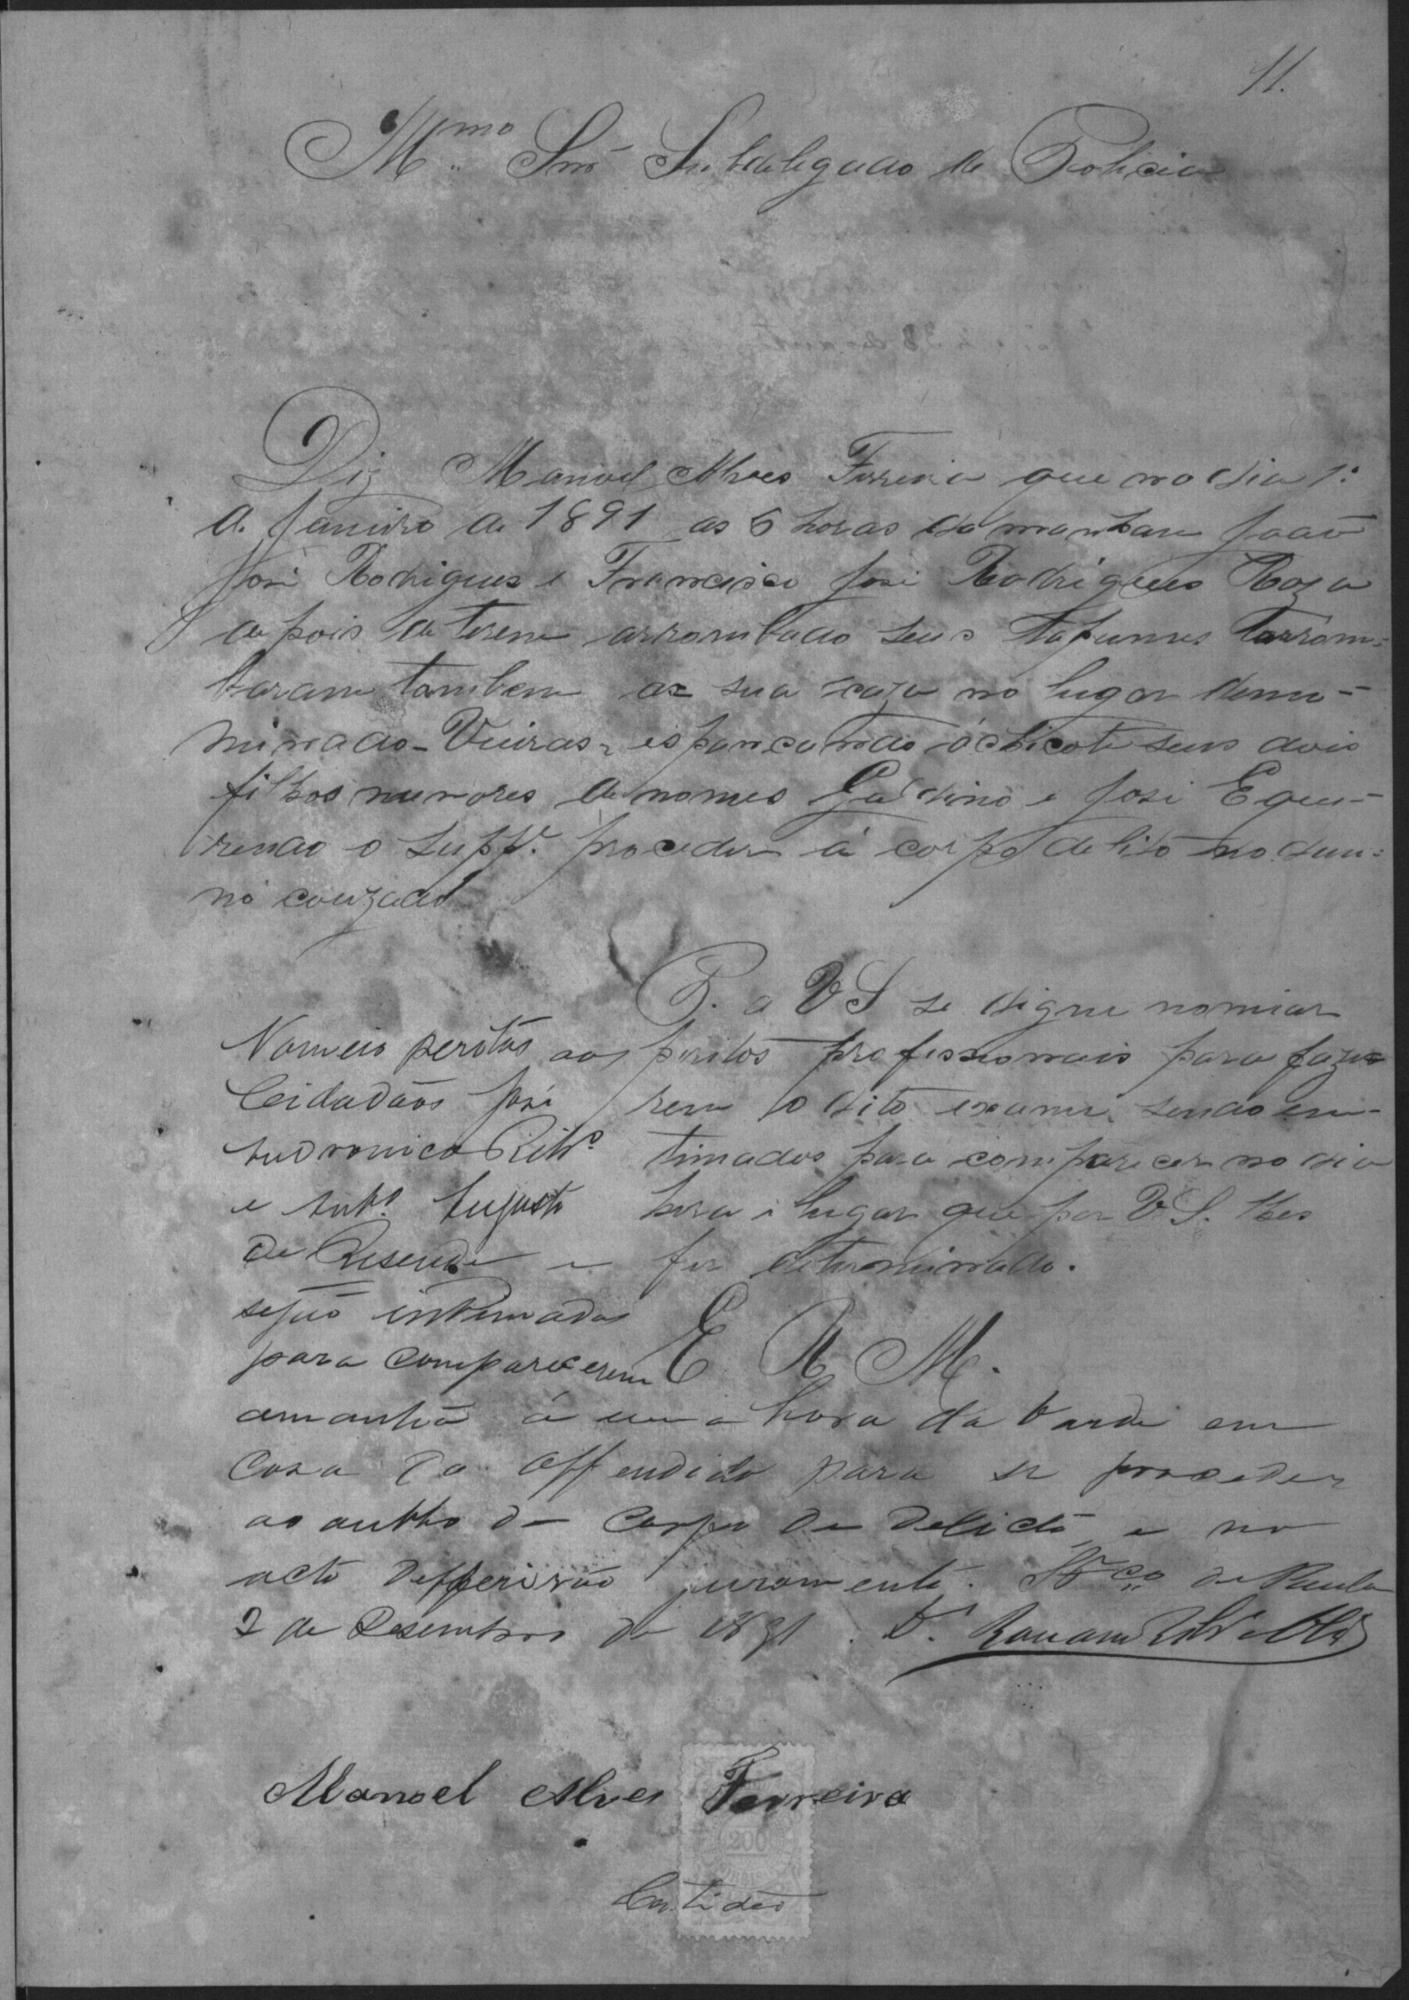 11.
Mmo Snr Subdelegado de Policia
Diz Manoel Alves Ferreira que no dia 1º
de Janeiro de 1891 as 6 horas da manhan João
José Rodrigues e Francisco José Rodrigues Roza
depois de terem arrombado seus tapumes arrom-
baram tambem a sua caza no lugar deno-
minado Vieiras, espancando á chicote seus dois
filhos menores de nomes Galdino e José E quer-
rendo o Suppe. proceder á corpo delito no dam-
no cauzado
P. a V S se digne nomiar
peritos profissionais para faze
rem o dito exame, sendo en-
timados para comparecer no dia
hora e lugar que por V. S. lhes
for determinado.
E R M.
Nomeio peritos aos
Cidadãos José
Andronico Ribro
e Anto. Augusto
de Resende e
sejão intimados
para comparecerem
amanhã á uma hora da tarde em
casa do offendido para se proceder
ao autho de Corpo de Delicto e no
acto defferirão juramento. de Paula
2 de Desembro de 1891.
Manoel Alves Ferreira
200
Certidão